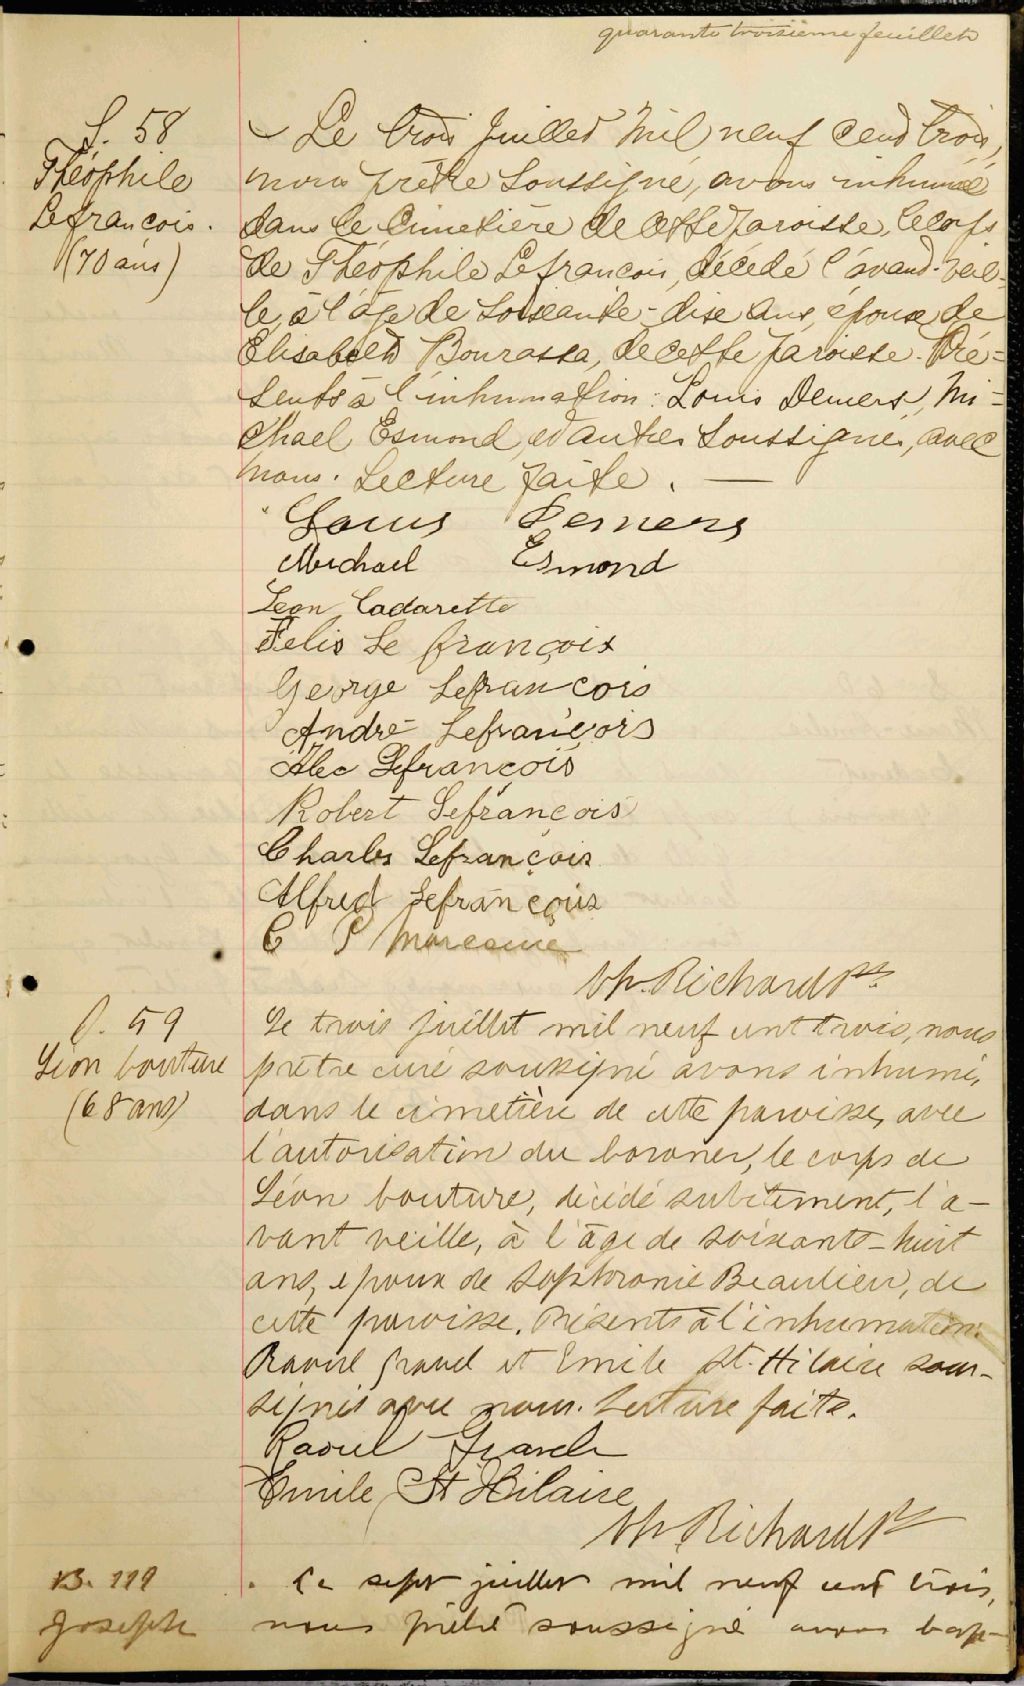 quarante troisième feuillet
S. 58
Théophile
Lefrancois.
(70 ans)
Le trois Juillet Mil neuf cent trois,
nous prêtre soussigné, avons inhumé
dans le Cimetière de cette Paroisse, le corps
de Théophile Lefrancois, décédé l'avant-veil-
le, à l'âge de soixante-dix ans, époux de
Elisabeth Bourassa, de cette Paroisse. Pré-
sents à l'inhumation: Louis Demers, Mi-
chael Esmond, et autres soussignés, avec
nous. Lecture faite. —
Louis Demers
Michael Esmond
Leon Cadarette
Felis Le françois
George Lefrançois
André Lefrançois
Alec Lefrançois
Robert Lefrançois
Charles Lefrançois
Alfred Lefrançois
C P
Richard Ptr.
S. 59
Léon Couture
(68 ans)
Le trois juillet mil neuf cent trois, nous
prêtre curé soussigné avons inhumé,
dans le cimetière de cette paroisse, avec
l'autorisation du Coroner, le corps de
Léon Couture, décédé subitement, l'a-
vant veille, à l'âge de soixante-huit
ans, epoux de Sophronie Beaulieu, de
cette paroisse. Présents à l'inhumation:
Raoul Gravel et Emile St. Hilaire sous-
signés avec nous. Lecture faite.
Raoul Gravel
Emile St Hilaire
Richard Ptr
B. 119
Joseph
Le sept juillet mil neuf cent trois,
nous prêtre soussigné avons bap-